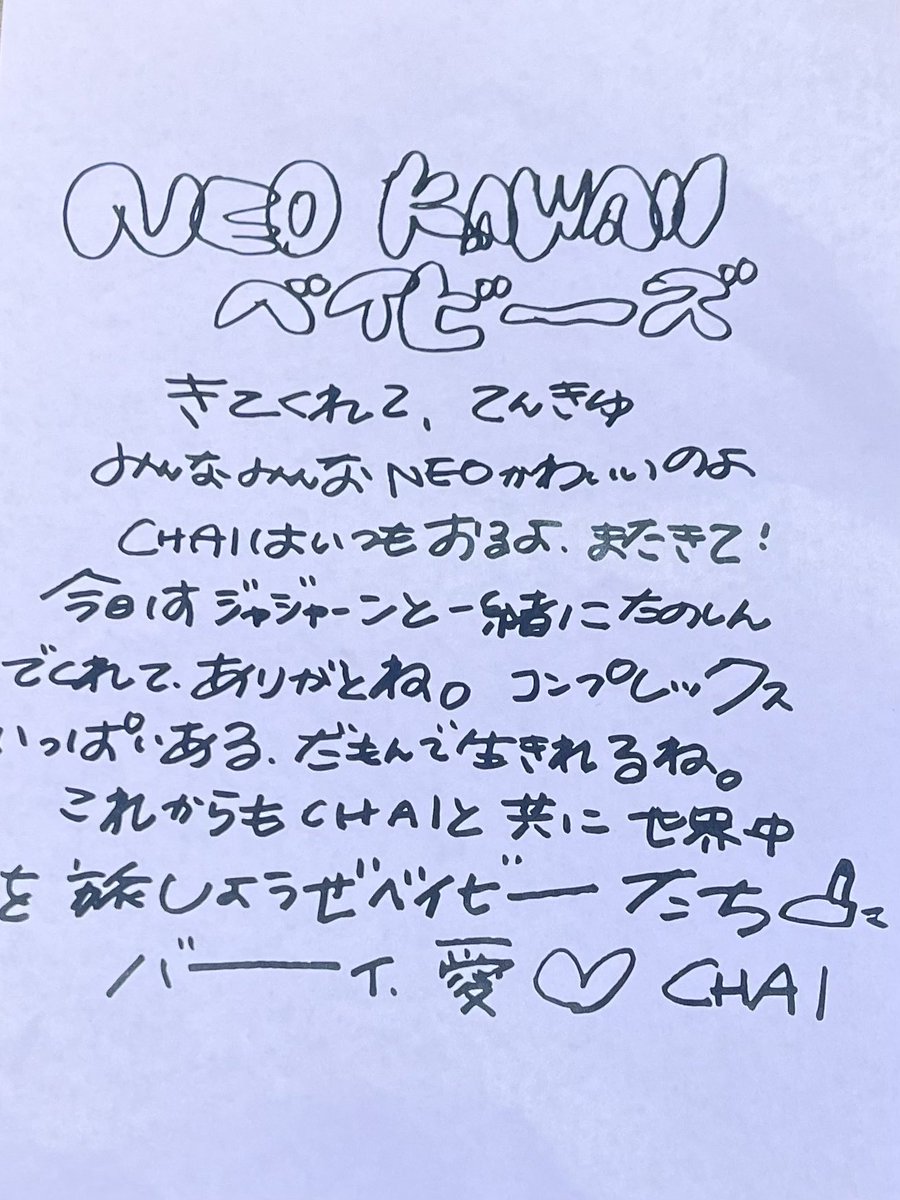 NEO KAWAII
ベイビーズ
きてくれて、てんきゅ
みんなみんなNEOかわいいのよ
CHAIはいつもおるよ、またきて!
今日はジャジャーンと一緒にたのしん
でくれて、ありがとね。コンプレックス
いっぱいある、だもんで生きれるね。
これからもCHAIと共に世界中
を旅しようぜベイビーたち
バーーイ、愛♡CHAI